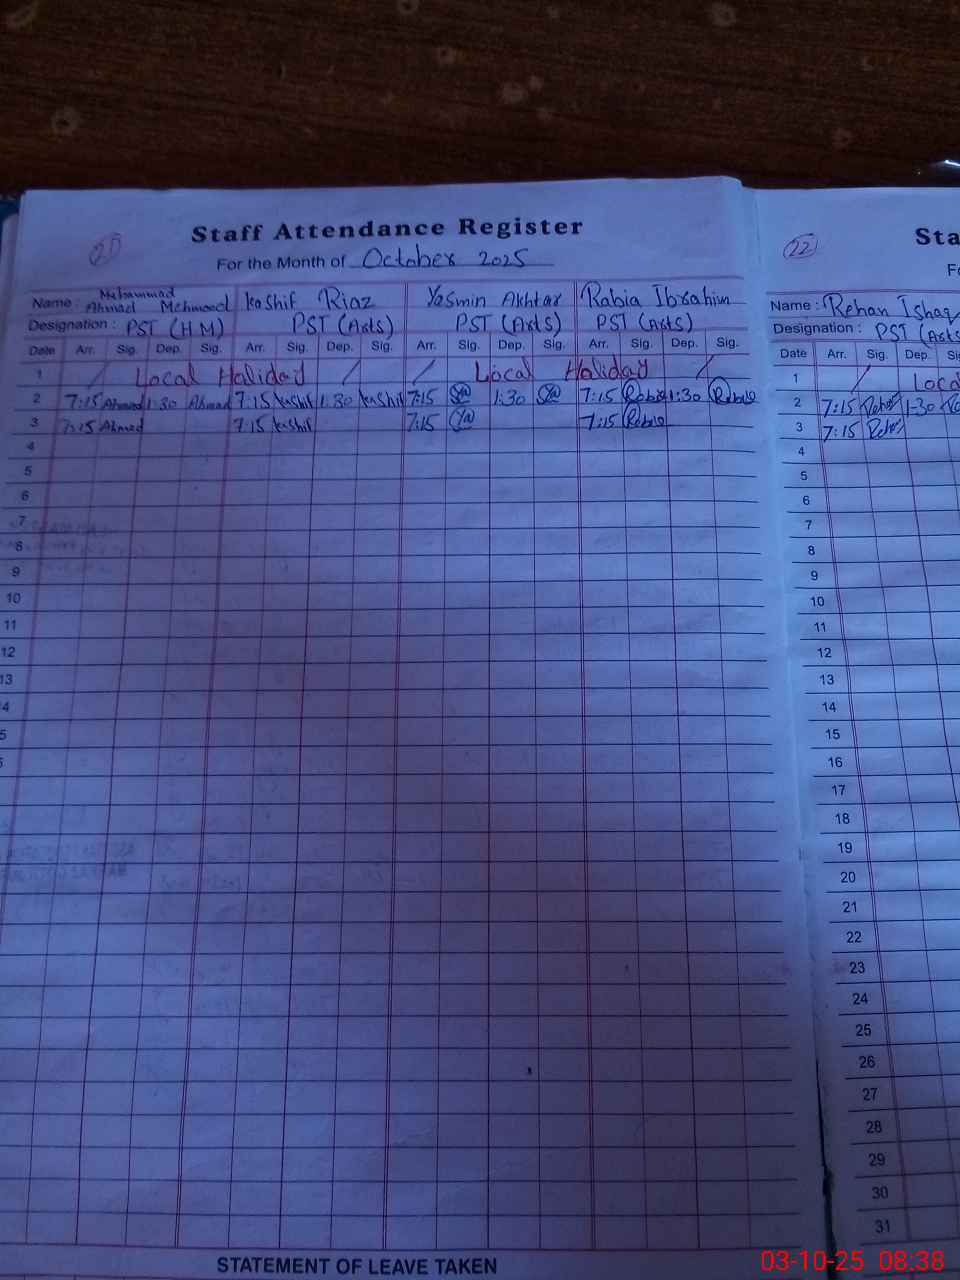 21
Staff Attendance Register
For the Month of October 2025
Name : Muhammad Ahmad Mehmood Kashif Riaz Yasmin Akhtar Rabia Ibrahim
Designation : PST (H M) PST (Arts) PST (Arts) PST (Arts)
Date Arr. Sig. Dep. Sig. Arr. Sig. Dep. Sig. Arr. Sig. Dep. Sig. Arr. Sig. Dep. Sig.
1 Local Holiday Local Holiday
2 7:15 Ahmad 1:30 Ahmad 7:15 Kashif 1:30 Kashif 7:15 1:30 7:15 Rabia 1:30 Rabia
3 7:15 Ahmad 7:15 Kashif 7:15 7:15 Rabia
4
5
6
7
8
9
10
11
12
13
4
5
STATEMENT OF LEAVE TAKEN
22
Sta
Fo
Name : Rehan Ishaq
Designation : PST (Arts
Date Arr. Sig. Dep. Sig
1 Loca
2 7:15 Rehan 1-30
3 7:15 Rehan
4
5
6
7
8
9
10
11
12
13
14
15
16
17
18
19
20
21
22
23
24
25
26
27
28
29
30
31
03-10-25 08:38